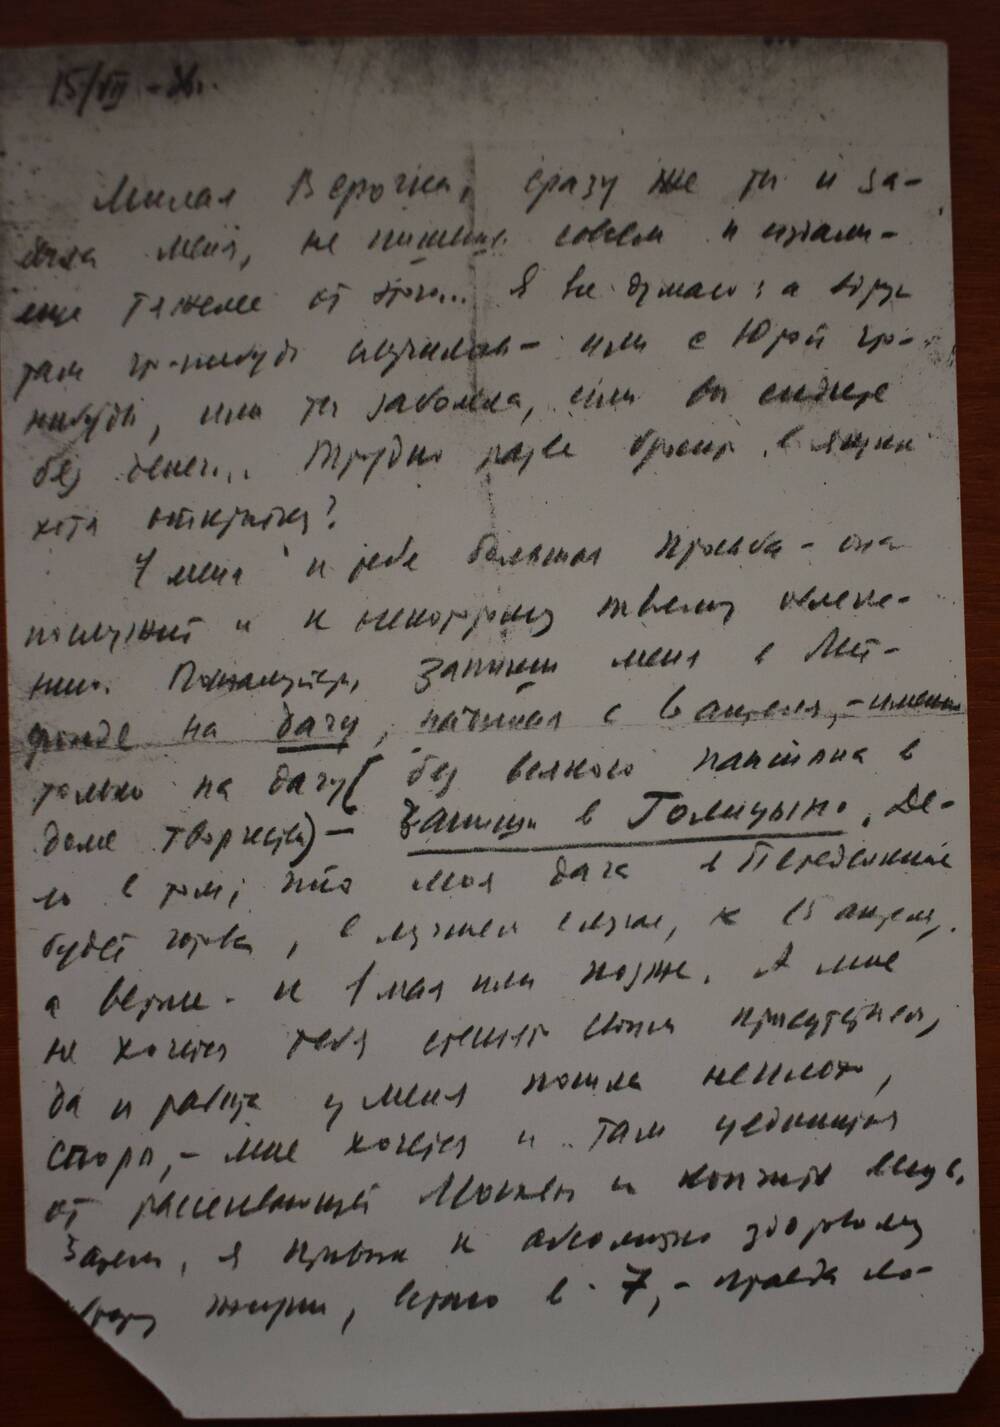 15/VII - 36г.
Милая Верочка, сразу же ты и за-
была меня, не пишешь совсем и
еще тяжеле от этого... Я все думаю: а вдруг
там что-нибудь случилось - или с Юрой что-
нибудь, или ты заболела, или вы сидите
без денег... Трудно разве бросить в ящик
хотя открытку?
У меня к тебе большая просьба - она
послужит и к некоторому твоему
Пожалуйста, запиши меня в Лит-
фонде на дачу, начиная с апреля, - именно
только на дачу (без всякого пансиона в
доме творчества) - запиши в Голицыно. Де-
ло в том, что моя дача в Переделкине
будет готова, в лучшем случае, к 15 апреля,
а вернее - к 1 мая или позже. А мне
не хочется тебя стеснять своим присутствием,
да и работа у меня пошла неплохо,
споро, - мне хочется и там уединиться
от рассеивающей Москвы и кончить вещь.
Затем, я привык к абсолютно здоровому
жизни, встаю в 7, - правда ло-